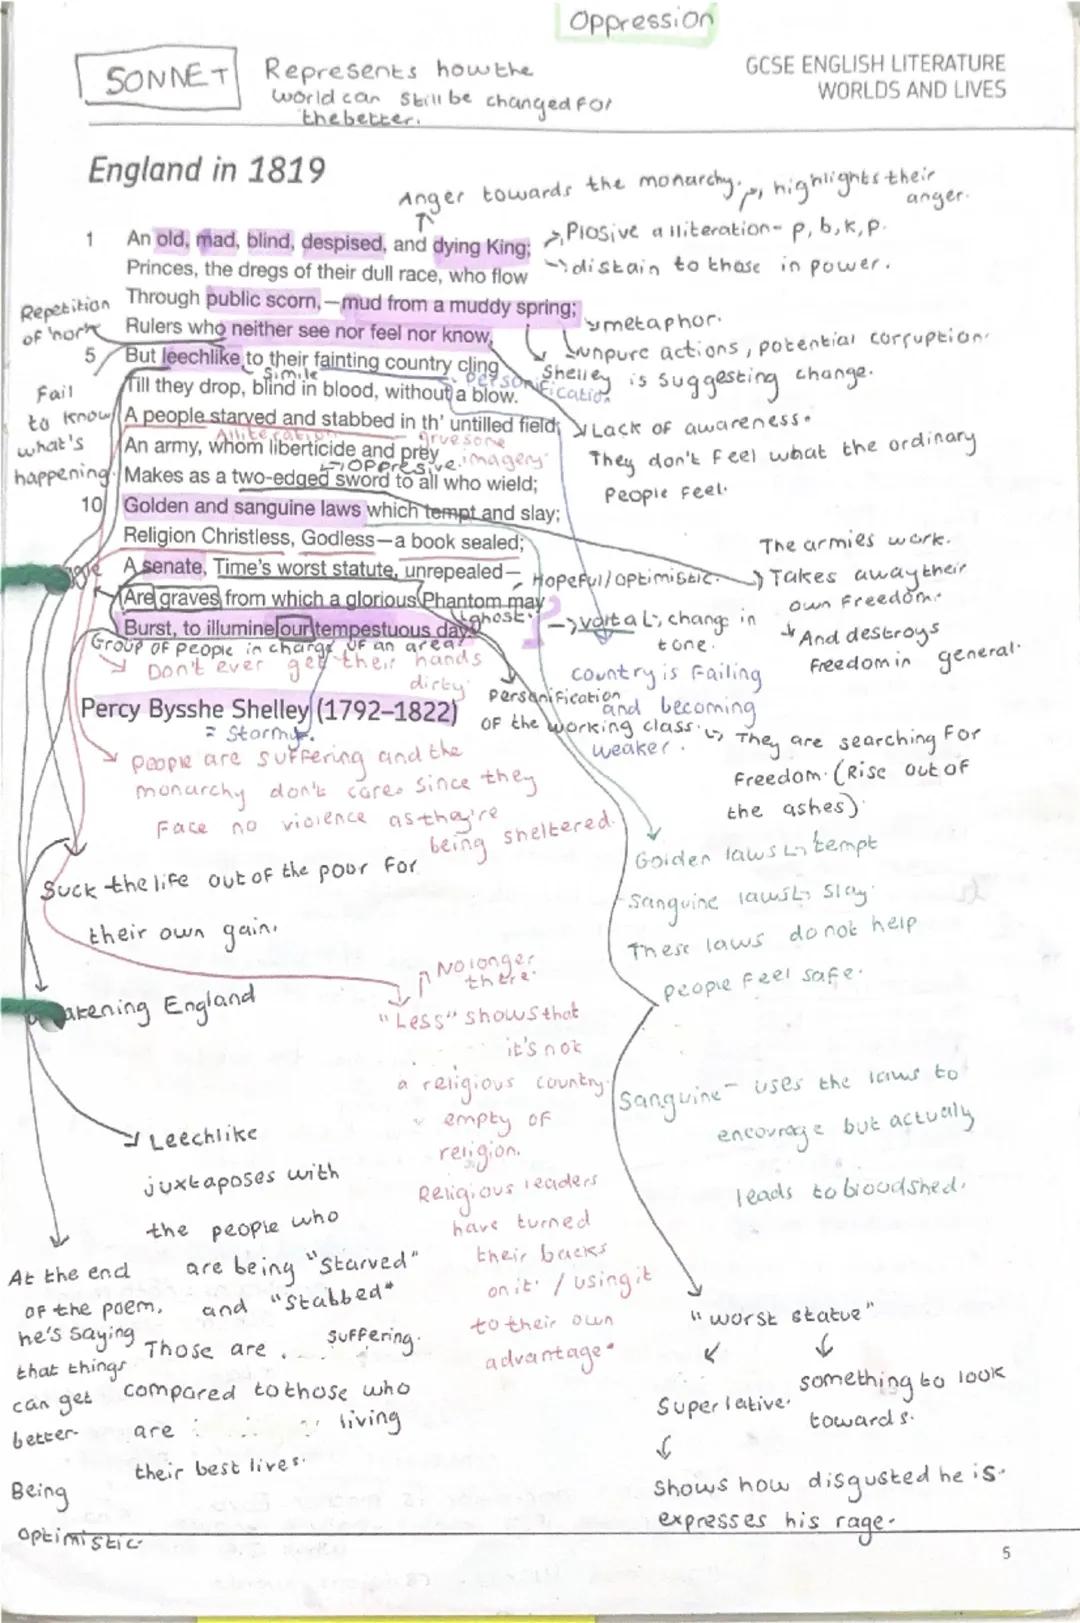 Oppression
SONNET
Represents how the
world can still be changed for
the better.
GCSE ENGLISH LITERATURE
WORLDS AND LIVES
England in 1819
Anger towards the monarchy.
highlights their
anger.
1 An old, mad, blind, despised, and dying King;
Plosive alliteration- p, b, k, p.
Princes, the dregs of their dull race, who flow
distain to those in power.
Through public scorn,—mud from a muddy spring;
Repetition
of 'nor'
metaphor.
Rulers who neither see nor feel nor know,
unpure actions, potential corruption.
5 But leechlike to their fainting country cling
Simile
Personification
Shelley is suggesting change.
Till they drop, blind in blood, without a blow.
Fail
to know
what's
happening.
A people starved and stabbed in th' untilled field;
Lack of awareness.
They don't feel what the ordinary
People feel.
Alliteration
gruesome
imagery
An army, whom liberticide and prey
oppresive.
Makes as a two-edged sword to all who wield;
10 Golden and sanguine laws which tempt and slay;
Religion Christless, Godless—a book sealed;
The armies work.
Takes away their
own freedom.
And destroys
freedom in general.
A senate, Time's worst statute, unrepealed—
Hopeful/optimistic.
Are graves from which a glorious Phantom may
ghost.
volta change in
tone.
Burst, to illumine our tempestuous day.
Group of people in charge of an area
Don't ever get their hands
dirty
country is failing
and becoming
weaker.
Personification
of the working class.
They are searching for
freedom. (Rise out of
the ashes)
Percy Bysshe Shelley (1792–1822)
= Stormy.
people are suffering and the
monarchy don't care. Since they
face no violence as they're
being sheltered.
Golden laws tempt
Sanguine laws slay.
These laws do not help
people feel safe.
Suck the life out of the poor for
their own gain.
No longer
there.
akening England
"Less" shows that
it's not
a religious country.
empty of
religion.
Religious leaders
have turned
their backs
on it. / using it
to their own
advantage.
Sanguine - uses the laws to
encourage but actualy
leads to bloodshed.
Leechlike
juxtaposes with
the people who
are being "starved"
and "stabbed"
Those are suffering.
compared to those who
are living
their best lives.
At the end
of the poem,
he's saying
that things
can get
better.
Being
optimistic.
"worst statue"
Superlative.
something to look
towards.
Shows how disgusted he is.
expresses his rage.
5